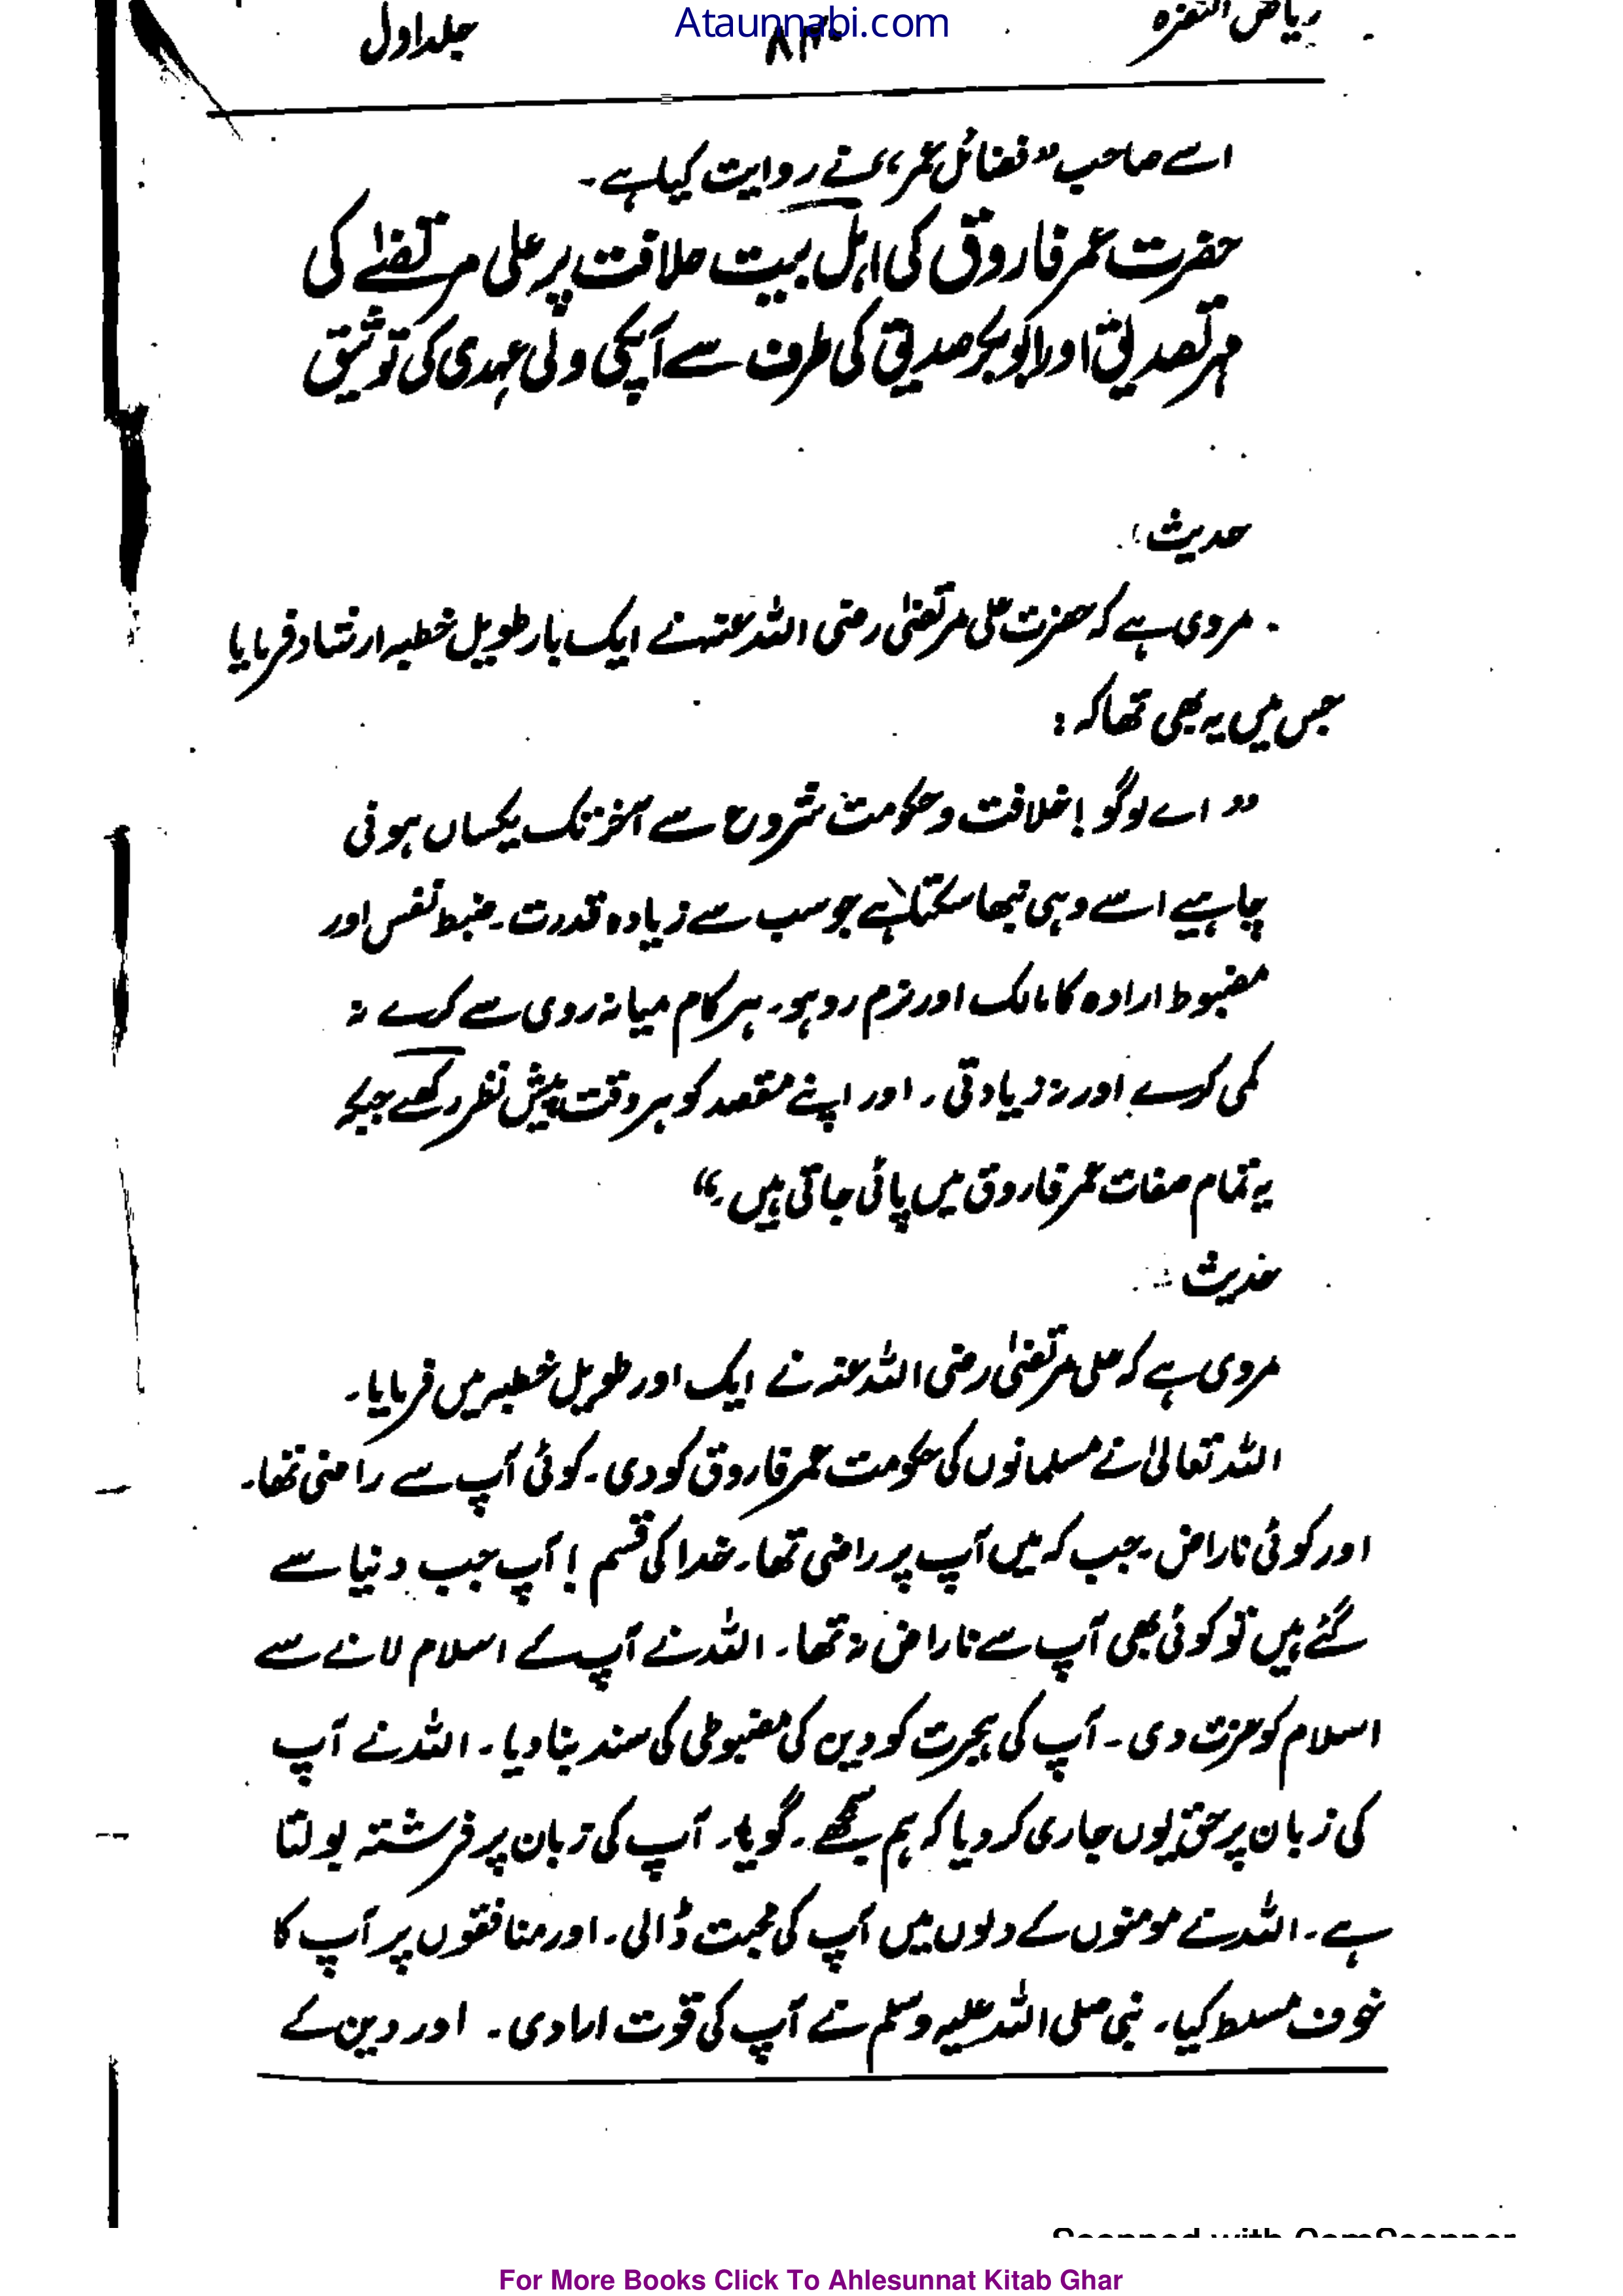 ریاض النضرہ
Ataunnabi.com
جلد اول
اسے صاحب "فضائل عمر" نے روایت کیا ہے۔
حضرت عمر فاروق کی اہل بیت خلافت پر علی مرتضےٰ کی
مہر تصدیق اور ابو بکر صدیق کی طرف سے آپکی ولی عہدی کی توثیق
حدیث:
مروی ہے کہ حضرت علی مرتضیٰ رضی اللہ عنہ نے ایک بار طویل خطبہ ارشاد فرمایا
جس میں یہ بھی تھا کہ :
"اے لوگو! خلافت و حکومت شروع سے آخر تک یکساں ہونی
چاہیے اسے وہی نبھا سکتا ہے جو سب سے زیادہ قدرت۔ ضبط نفس اور
مضبوط ارادہ کا مالک اور نرم رو ہو۔ ہر کام میانہ روی سے کرے نہ
کمی کرے اور نہ زیادتی۔ اور اپنے مقصد کو ہر وقت پیش نظر رکھے جبکہ
یہ تمام صفات عمر فاروق میں پائی جاتی ہیں۔"
حدیث :-
مروی ہے کہ علی مرتضیٰ رضی اللہ عنہ نے ایک اور طویل خطبہ میں فرمایا۔
اللہ تعالیٰ نے مسلمانوں کی حکومت عمر فاروق کو دی۔ کوئی آپ سے راضی تھا۔
اور کوئی ناراض۔ جب کہ میں آپ پر راضی تھا۔ خدا کی قسم! آپ جب دنیا سے
گئے ہیں تو کوئی بھی آپ سے ناراض نہ تھا۔ اللہ نے آپ کے اسلام لانے سے
اسلام کو عزت دی۔ آپ کی ہجرت کو دین کی مضبوطی کی سند بنا دیا۔ اللہ نے آپ
کی زبان پر حق یوں جاری کر دیا کہ ہم سمجھے۔ گویا۔ آپ کی زبان پر فرشتہ بولتا
ہے۔ اللہ نے مومنوں کے دلوں میں آپ کی محبت ڈالی۔ اور منافقوں پر آپ کا
خوف مسلط کیا۔ نبی صلی اللہ علیہ وسلم نے آپ کی قوت امادی۔ اور دین کے
Scanned with CamScanner
For More Books Click To Ahlesunnat Kitab Ghar